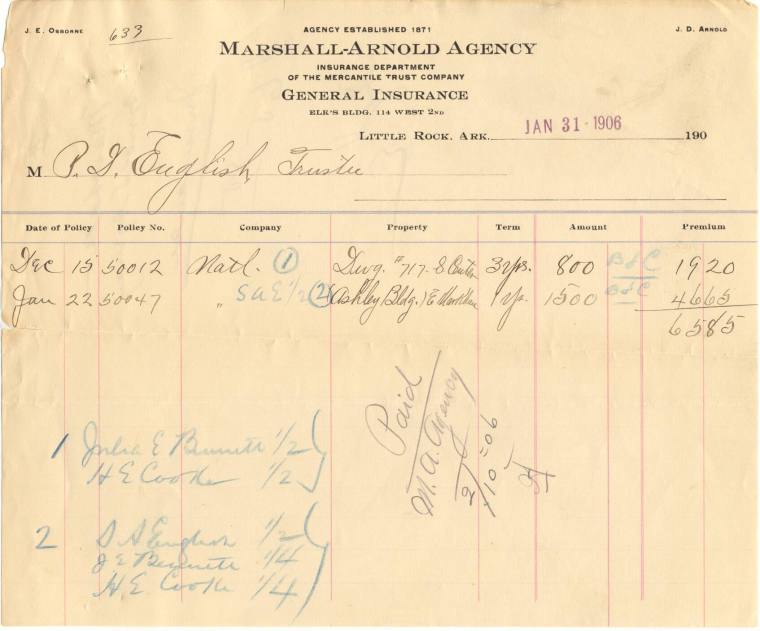 J. E. Osborne
633
AGENCY ESTABLISHED 1871
J. D. Arnold
Marshall-Arnold Agency
INSURANCE DEPARTMENT
OF THE MERCANTILE TRUST COMPANY
General Insurance
ELK'S BLDG. 114 WEST 2ND
Little Rock, Ark. JAN 31 1906 190
M P. D. English, Trustee
Date of Policy Policy No. Company Property Term Amount Premium
Dec 15 50012 Natl. 1 Dwg. #717 S 3 yrs. 800 B & C 19 20
Jan 22 50047 " SAE 1/2 2 (Ashley Bldg.) E Markham 1 yr. 1500 B & C 46 65
65 85
Paid
M. A. Agency
2/10-06
1 Julia E Bennett 1/2
H E Cooke 1/2
2 S A English 1/2
J E Bennett 1/4
H E. Cooke 1/4